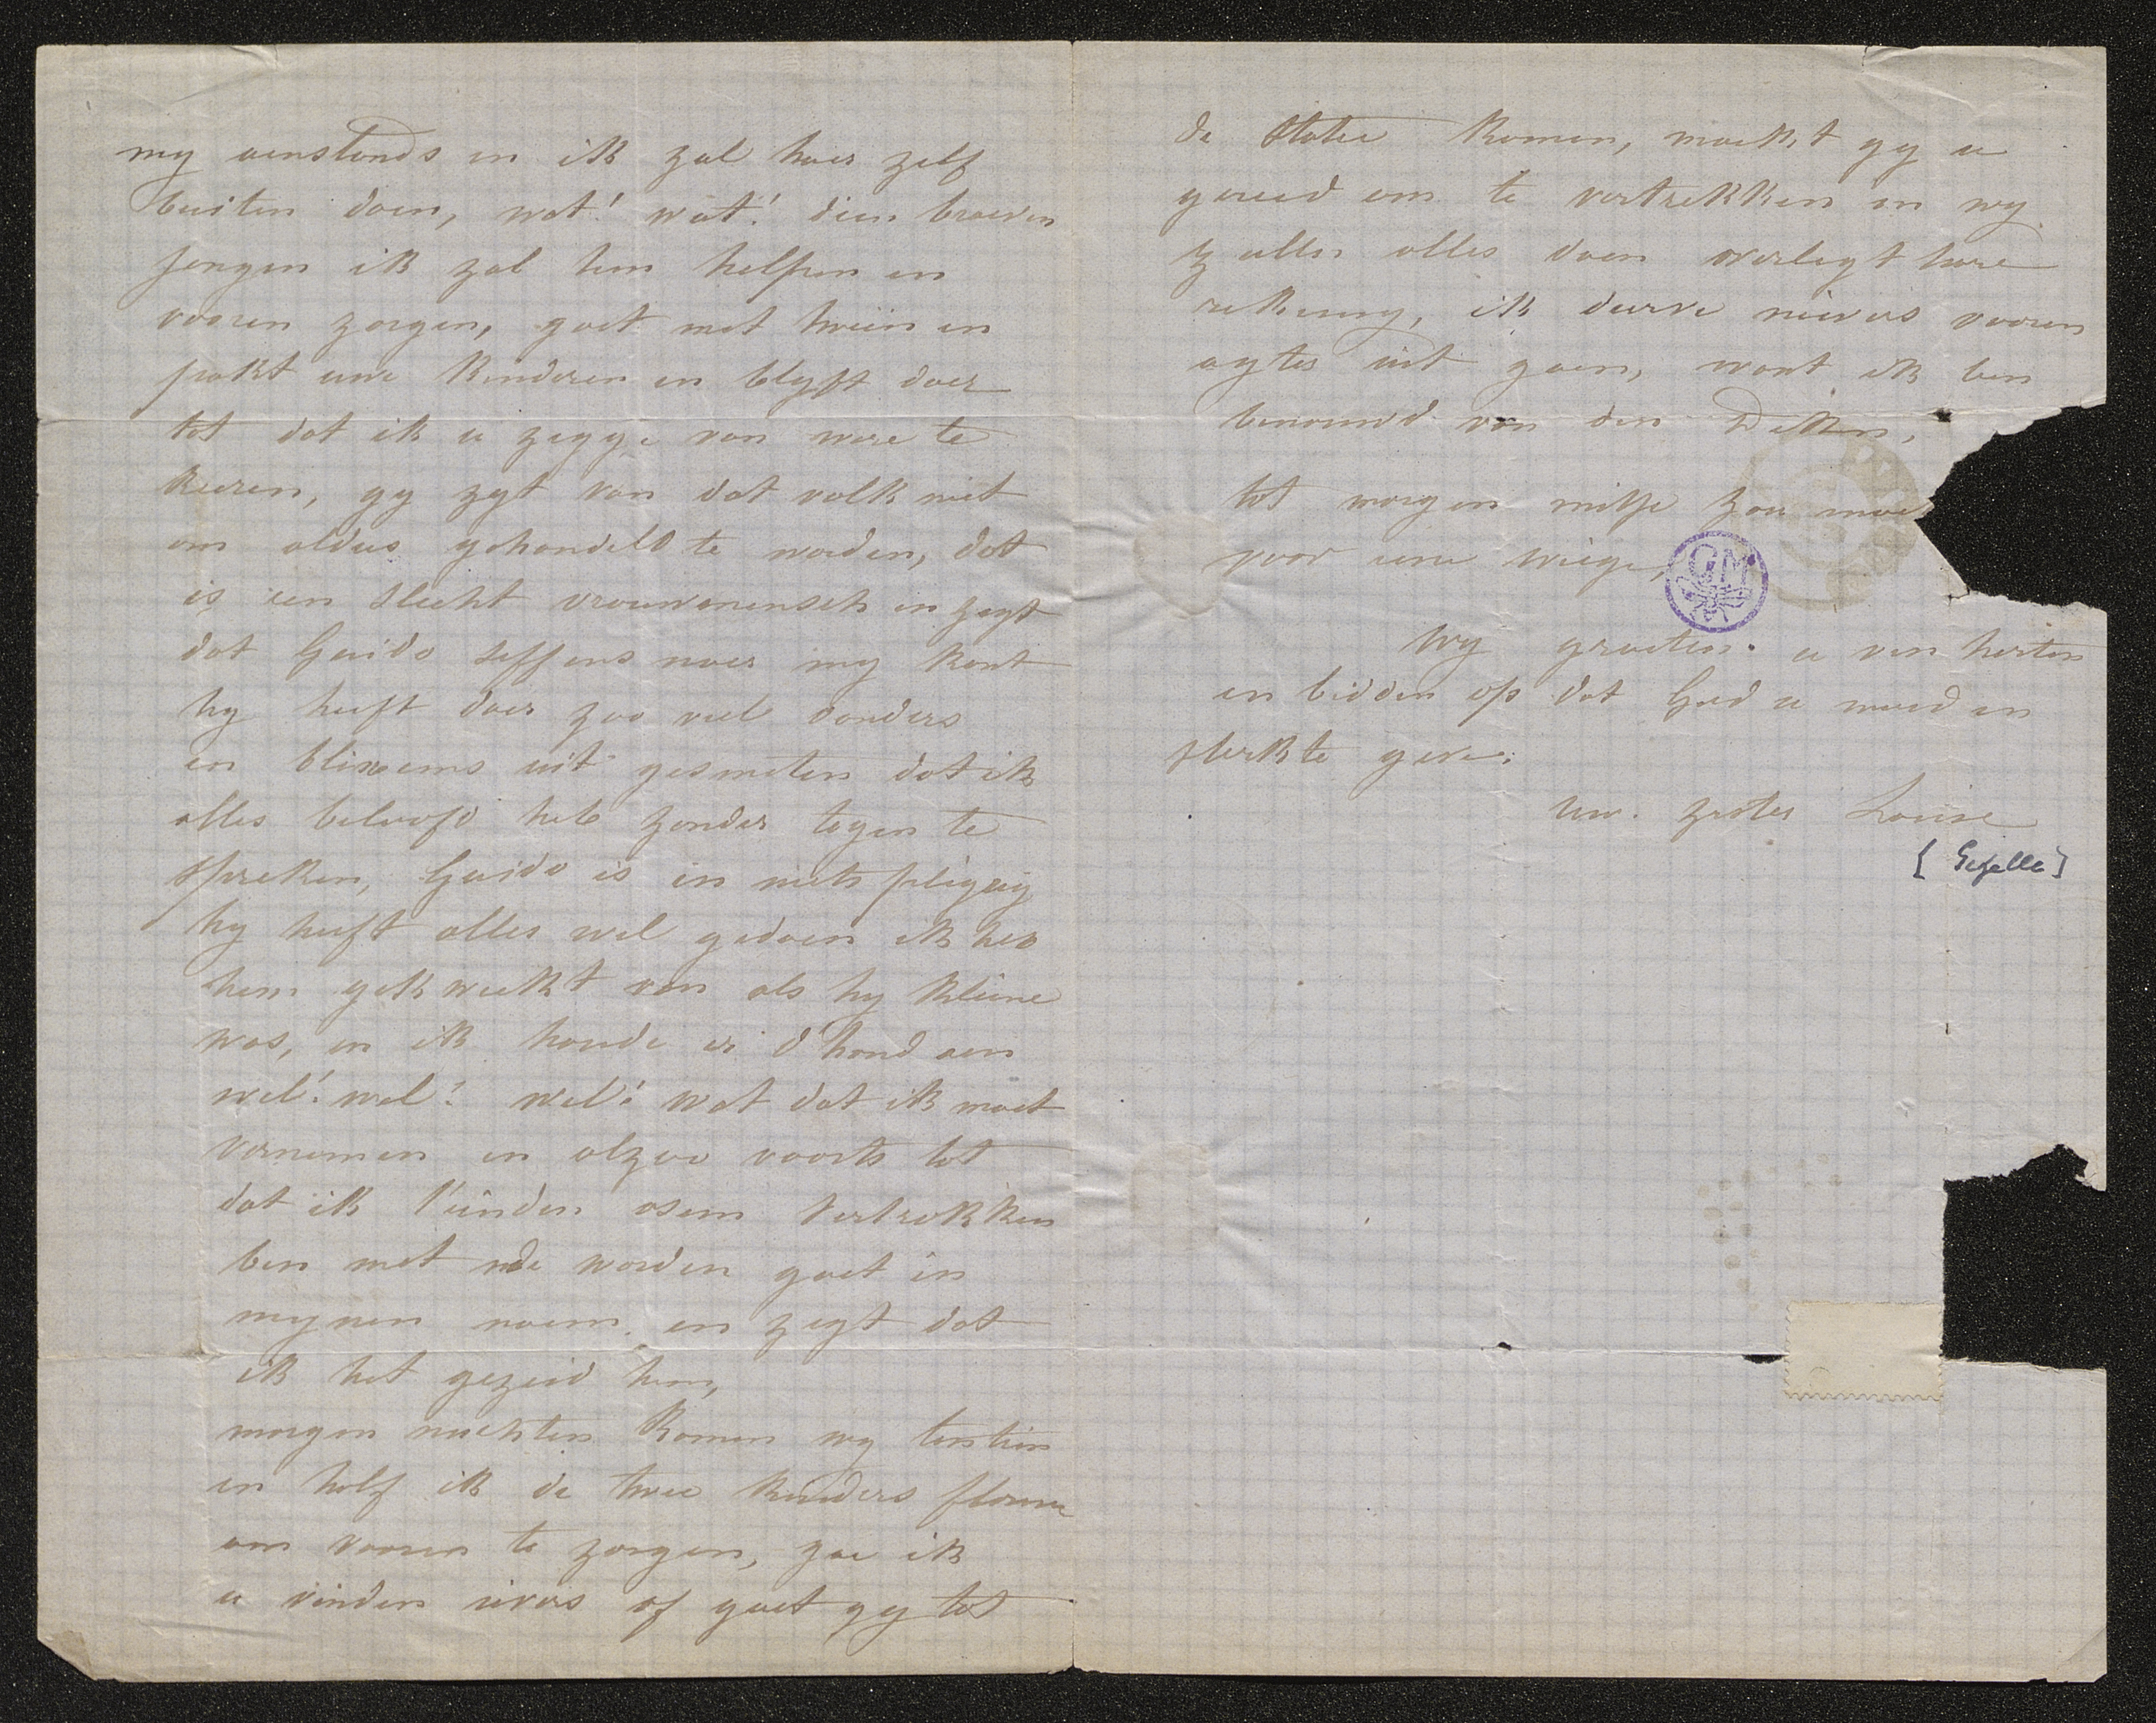 my aenstonds en ik zal haer zelf
buiten doen, wat! wat! dien braeven
jongen ik zal hem helpen en
vooren zorgen, gaet met trein en
pakt uwe kinderen en blyft daer
tot dat ik u zegge van were te
keeren, gy zyt van dat volk niet
om aldus gehandeld te worden, dat
is een slecht vrouwmensch en zegt
dat Guido seffens naer my komt
hy heeft daer zoo veel donders
en blixems uit gesmeten dat ik
alles beloofd heb zonder tegen te
spreken, Guido is in niets pligtig
hy heeft alles wel gedaen ik heb
hem gekweekt van als hy kleine
was, en ik houde er d'hand aen
wel! wel! wel! wat dat ik moet
vernemen en alzoo voorts tot
dat ik t'einden asem vertrokken
ben met de woorden gaet in
mynen naem en zegt dat
ik het gezeid hem,
morgen nuchten komen wy
en half ik de twee kinders
om vooren te zorgen, zoe ik
u vinden ievers of gaet gy tot
de Statie komen, maekt gy u
gereed om te vertrekken en wy
zullen alles doen overlegt hare
rekening, ik durve nievers vooren
agter uit gaen, want ik ben
benouwd van den Deken,
tot morgen
voor uwe wiege,
GM
Wy groeten u van herten
en bidden op dat God u moed en
sterkte geve.
uw. zuster Louise
[Gezelle]